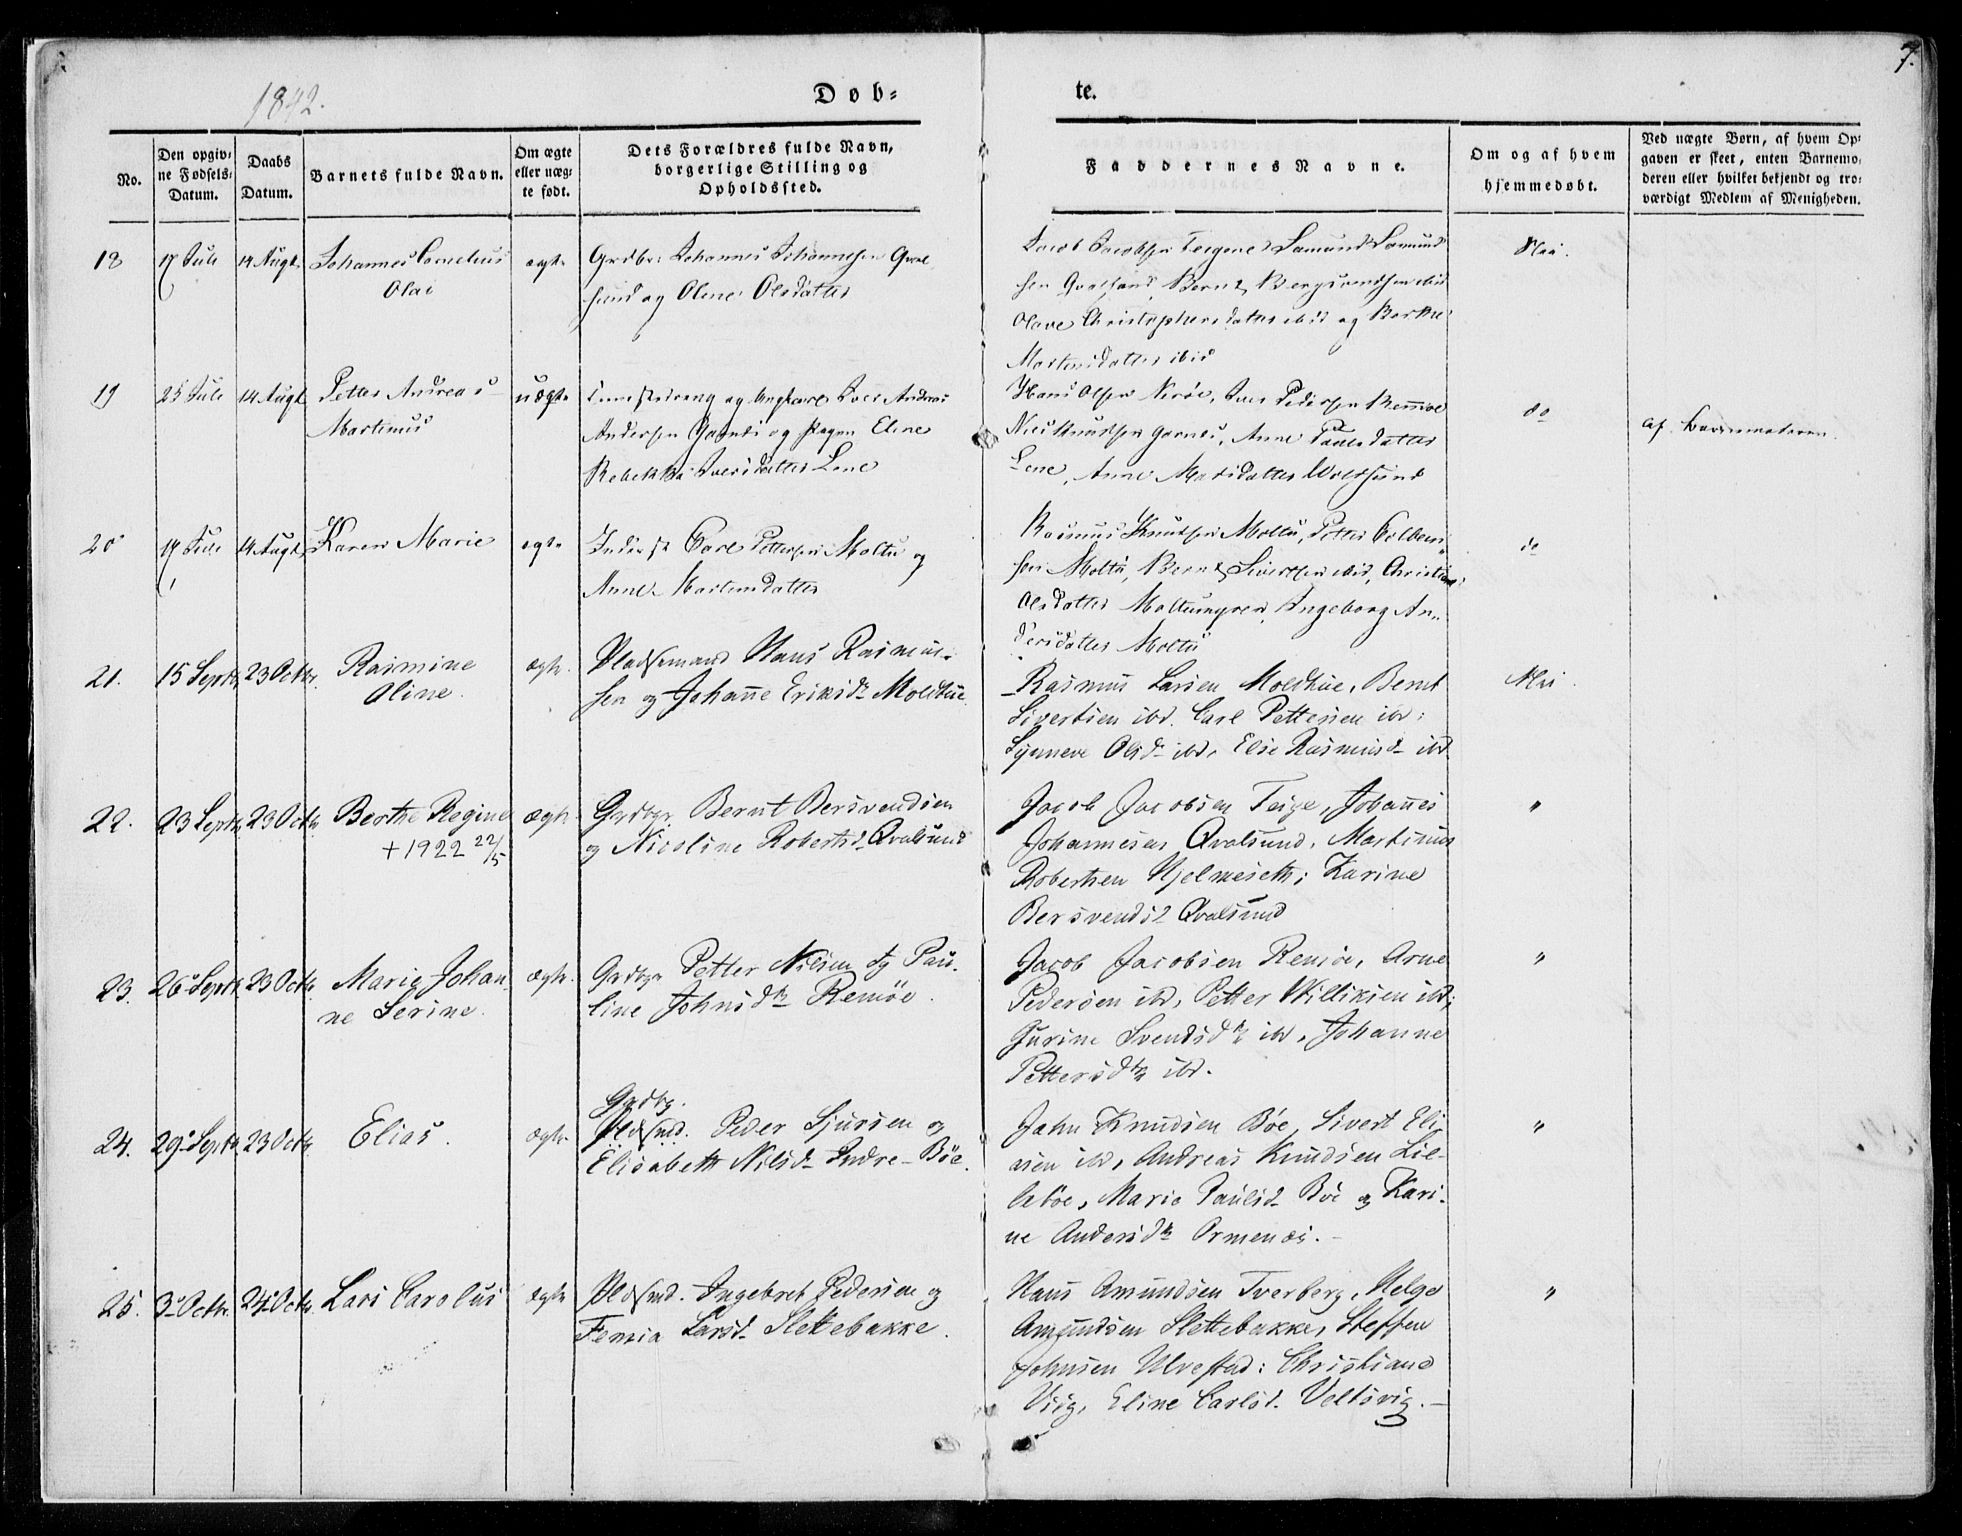 7.
1842.
Døb-
te.
No.
Den opgiv-
ne Fødsels-
Datum.
Daabs
Datum.
Barnets fulde Navn.
Om ægte
eller uæg-
te født.
Dets Forældres fulde Navn,
borgerlige Stilling og
Opholdssted.
Faddernes Navne.
Om og af hvem
hjemmedøbt.
Ved uægte Børn, af hvem Op-
gaven er skeet, enten Barnemo-
deren eller hvilket bekjendt og tro-
værdigt Medlem af Menigheden.
18
17 Juli
14 Augt.
Johannes Cornelius
Olai
ægte
Grdbr. Johannes Johannesen Qval
sund og Oline Olsdatter
Jacob Jacobsen Teigene Samund Samund
sen Qvalsund, Bernt Bergsvendsen ibid
Olave Christophersdatter ibid og Berthe
Martensdatter ibid
Nei.
19
25 Juli
14 Augt
Petter Andreas
Martinus
uægte
og Ungkarl Iver Andreas
Andersen Garnes og Pigen Eline
Rebekka Iversdatter Lene
Hans Olsen Nerøe, Iver Pedersen Remøe
Nils Knudsen Garnes, Anne Paulsdatter
Lene, Anne Matsdatter
do
af Barnemoderen.
20
14 Augt.
Karen Marie
ægte
Inderst Carl Pettersen Moltu og
Anne Martensdatter
Rasmus Knudsen Moltu, Petter
sen Moltu, Bernt Sivertsen ibid, Christiane
Olsdatter Moltumyren, Ingeborg An-
dersdatter Moltu
do
21.
15 Septr.
23 Octbr.
Rasmine
Oline.
ægte.
Pladsemand Hans Rasmus-
sen og Johanne Eriksdr Moldtue.
Rasmus Larsen Moldtue, Bernt
Sivertsen ibd. Carl Pettersen ibd;
Synneve Olsd ibd, Else Rasmusd ibd.
Nei.
22.
23 Septr.
23 Octbr.
Berthe Regine
+ 1922 22/5
ægte.
Grdbgr. Bernt Bersvendsen
og Nicoline Robertsd Qvalsund
Jacob Jacobsen Teige, Johanes
Johannesen Qvalsund, Martinus
Robertsen Hjelmeseth; Karine
Bersvendsd Qvalsund
"
23.
26 Septr.
23 Octbr.
Marie Johan
ne Serine.
ægte.
Grdbgr Petter Nilsen og Pau-
line Johnsdtr Remøe.
Jacob Jacobsen Remøe, Arne
Pedersen ibd, Petter Williksen ibd;
Gurine Svendsdtr ibd, Johanne
Pettersdtr ibd.
"
24.
29 Septr.
23 Octbr.
Elias.
ægte.
Grdbg.
Pldsmd. Peder Sjursen og
Elisabeth Nilsd Indre-Bøe.
John Knudsen Bøe, Sivert Eli-
asen ibd, Andreas Knudsen Lil-
lebøe, Marie Paulsd Bøe og Kari-
ne Andersdtr Ormenæs.-
"
25.
3 Octbr.
24 Octbr.
Lars Carolus
ægte
Pldsmd. Ingebret Pedersen og
Femia Larsd. Slettebakke.
Hans Amundsen Tverberg, Helge
Amundsen Slettebakke, Steffen
Johnsen Ulvestad: Christiane
Viig, Eline Carlsd. Veltsvig.-
"